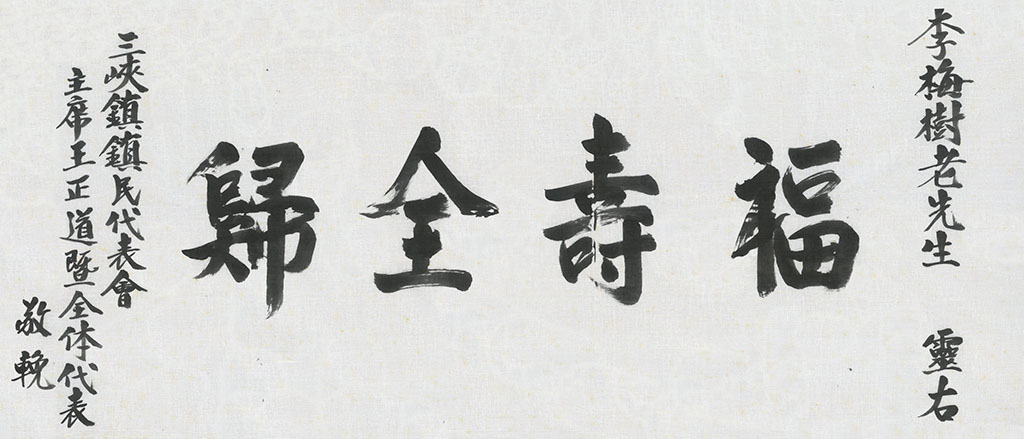 李梅樹老先生 靈右
福壽全歸
三峽鎮鎮民代表會
主席王正道暨全体代表
敬輓